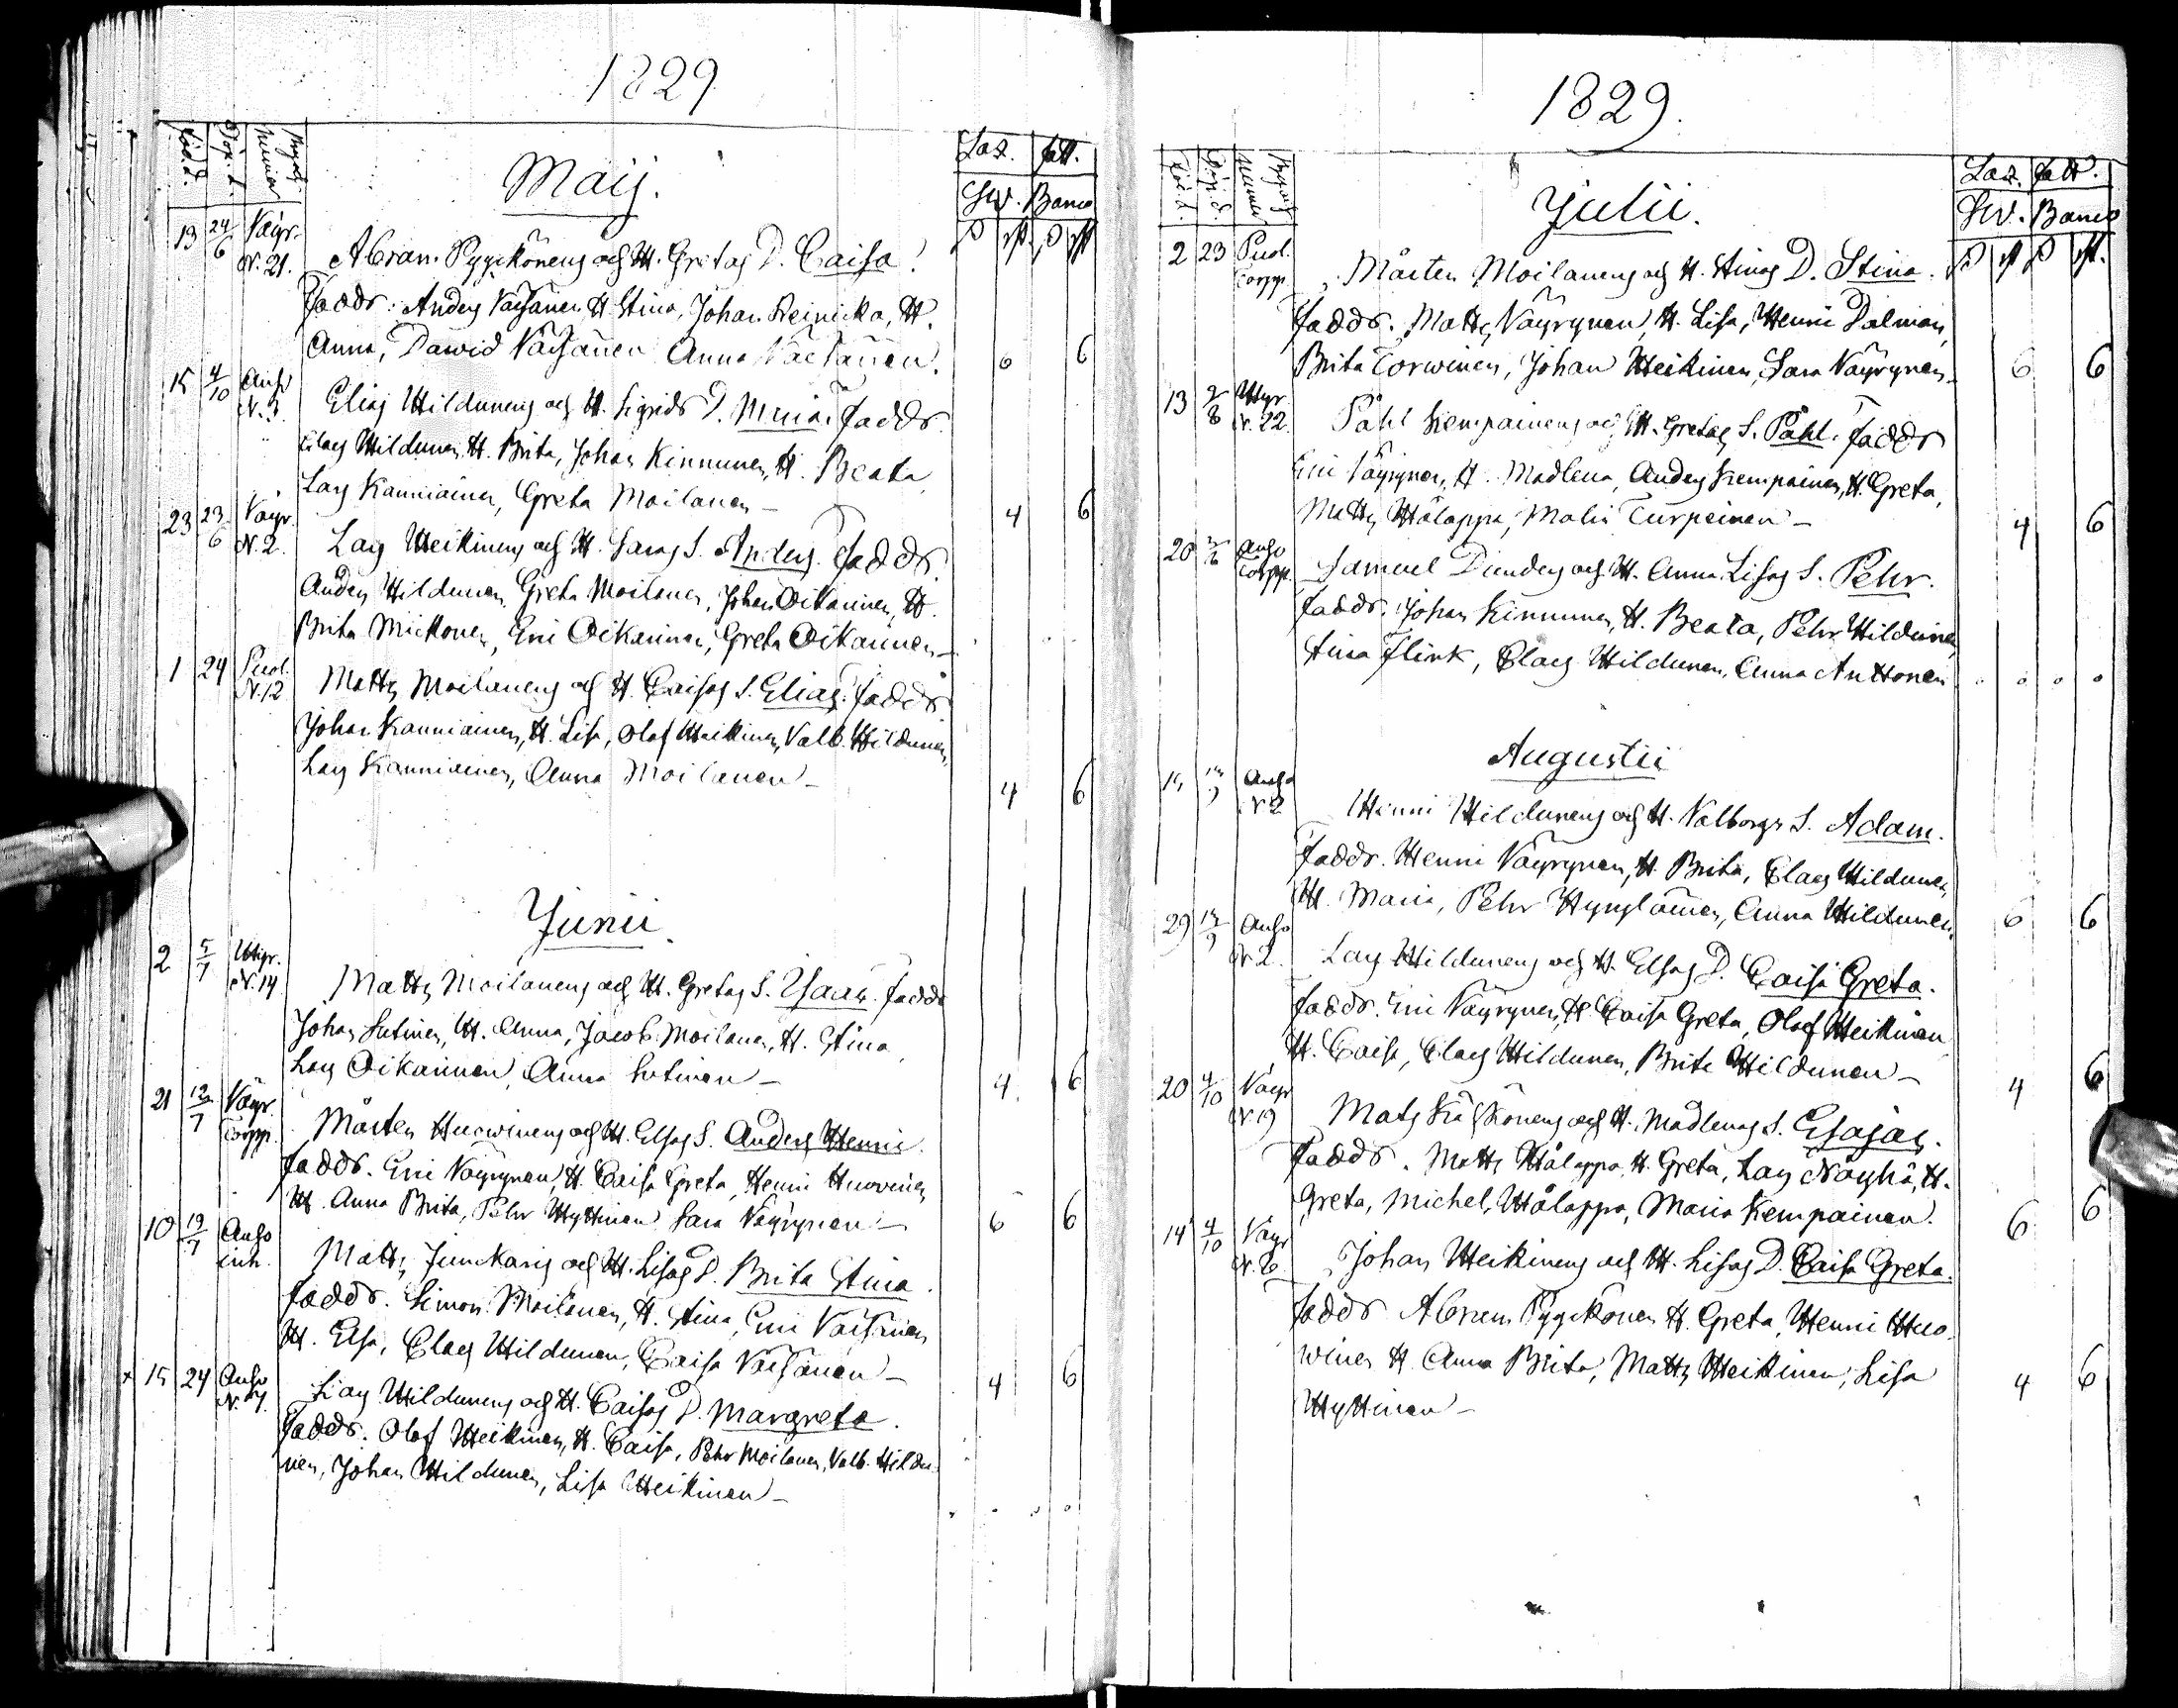 1829
Född. Döp. d. Byars nummer
Maij.
Laz. fatt.
Sw. Banco
13 24/6 Väyr. N. 21. Abram Pyyköneng och H. Gretas D. Caisa.
Faddr. Anders Väisänen H. Stina, Johan Reinicka, H.
Anna, Dawid Väisänen Anna Väisänen. 6 6
15 4/10 Anso N. 3. Elias Hilduneng och H. Sigrids D. Maria. Faddr.
Claes Hildunen H. Brita, Johan Kinnunen, H. Beata,
Lars Kanniainen, Greta Moilanen – 4 6
23 23/6 Väyr. N. 2. Lars Heikineng och H. Saras S. Anders. Faddr.
Anders Hildunen, Greta Moilanen, Johan Oikarinen, H.
Brita Mickonen, Eric Oikarinen, Greta Oikarinen –
1 24 Puol. N. 12 Matts Moilaneng och H. Caisas S. Elias. Faddr
Johan Kanniainen, H. Lisa, Olof Heikinen, Valb. Hildunen,
Lars Kanniainen, Anna Moilanen – 4 6
Junii.
2 5/7 Hyr. N. 14 Matts Moilaneng och H. Gretas S. Isaac. Faddr
Johan Sutinen, H. Anna, Jacob Moilanen, H. Stina,
Lars Oikarinen, Anna Sutinen – 4 6
21 12/7 Väyr. Torpp. Mårten Huowineng och H. Elsas S. Anders Henric.
Faddr. Eric Väyrynen, H. Caisa Greta, Henric Huovinen,
H. Anna Brita, Pehr Hyttinen Sara Väyrynen – 6 6
10 19/7 Anso inh. Matts Junckaris och H. Lisas D. Brita Stina.
Faddr. Simon Moilanen, H. Stina, Eric Väisänen
H. Elsa, Claes Hildunen, Caisa Väisänen – 4 6
x 15 24 Anso N. 7. Lars Hilduneng och H. Caisas D. Margreta.
Faddr. Olof Heikinen, H. Caisa, Pehr Moilanen, Valb. Hildu
nen, Johan Hildunen, Lisa Heikinen –
1829.
Född. Döp. d. Byars nummer
Julii.
Laz. fatt.
Sw. Banco
2 23 Puol. Torpp. Mårten Moilaneng och H. Stinas D. Stina.
Faddr. Matts Väyrynen, H. Lisa, Henric Dalman,
Brita Torwinen, Johan Heikinen, Sara Väyrynen – 6 6
13 2/8 Hyr. N. 22. Påhl Kempaineng och H. Gretas S. Påhl. Faddr
Eric Väyrynen, H. Madlena, Anders Kempainen, H. Greta,
Matts Hålappa, Malin Turpeinen – 4 6
20 Anso Torpp. Samuel Dunders och H. Anna Lisas S. Pehr.
Faddr. Johan Kinnunen, H. Beata, Pehr Hildunen,
Stina Flink, Claes Hildunen, Anna Anttonen
Augustii
Anso N 2 Henric Hilduneng och H. Valborgs S. Adam.
Faddr. Henric Väyrynen, H. Brita, Claes Hildunen,
H. Maria, Pehr Hyryläinen, Anna Hildunen. 6 6
29 Anso N 2. Lars Hilduneng och H. Elsas D. Caisa Greta.
Faddr. Eric Väyrynen, H. Caisa Greta, Olof Heikinen
H. Caisa, Claes Hildunen, Brita Hildunen – 4 6
20 4/10 Väyr N. 19 Mats Kähköneng och H. Madlenas S. Esajas.
Faddr. Matts Hålappa, H. Greta, Lars Näyhä, H.
Greta, Michel Hålappa, Maria Kempainen. 6 6
14 4/10 Väyr N. 6. Johan Heikineng och H. Lisas D. Caisa Greta.
Faddr Abram Pyykönen H. Greta, Henric Huo
winen H. Anna Brita, Matts Heikinen, Lisa 4 6
Hyttinen –